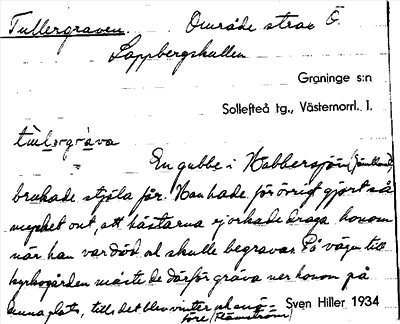 Tullergraven. Område strax Ö.
Lappbergskullen
Graninge s:n
Sollefteå tg., Västernorrl. l.
En gubbe i Habbersjön (Jämtland)
brukade stjäla får. Han hade för övrigt gjort så
mycket ont, att hästarna ej orkade draga honom
när han var död och skulle begravas. På vägen till
kyrkogården måste de därför gräva ner honom på
denna plats, tills det blev vinter
före (Hämström) Sven Hiller 1934